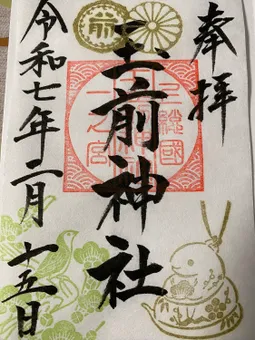 奉拝
上總國
玉前神社
一之宮
令和七年二月十五日